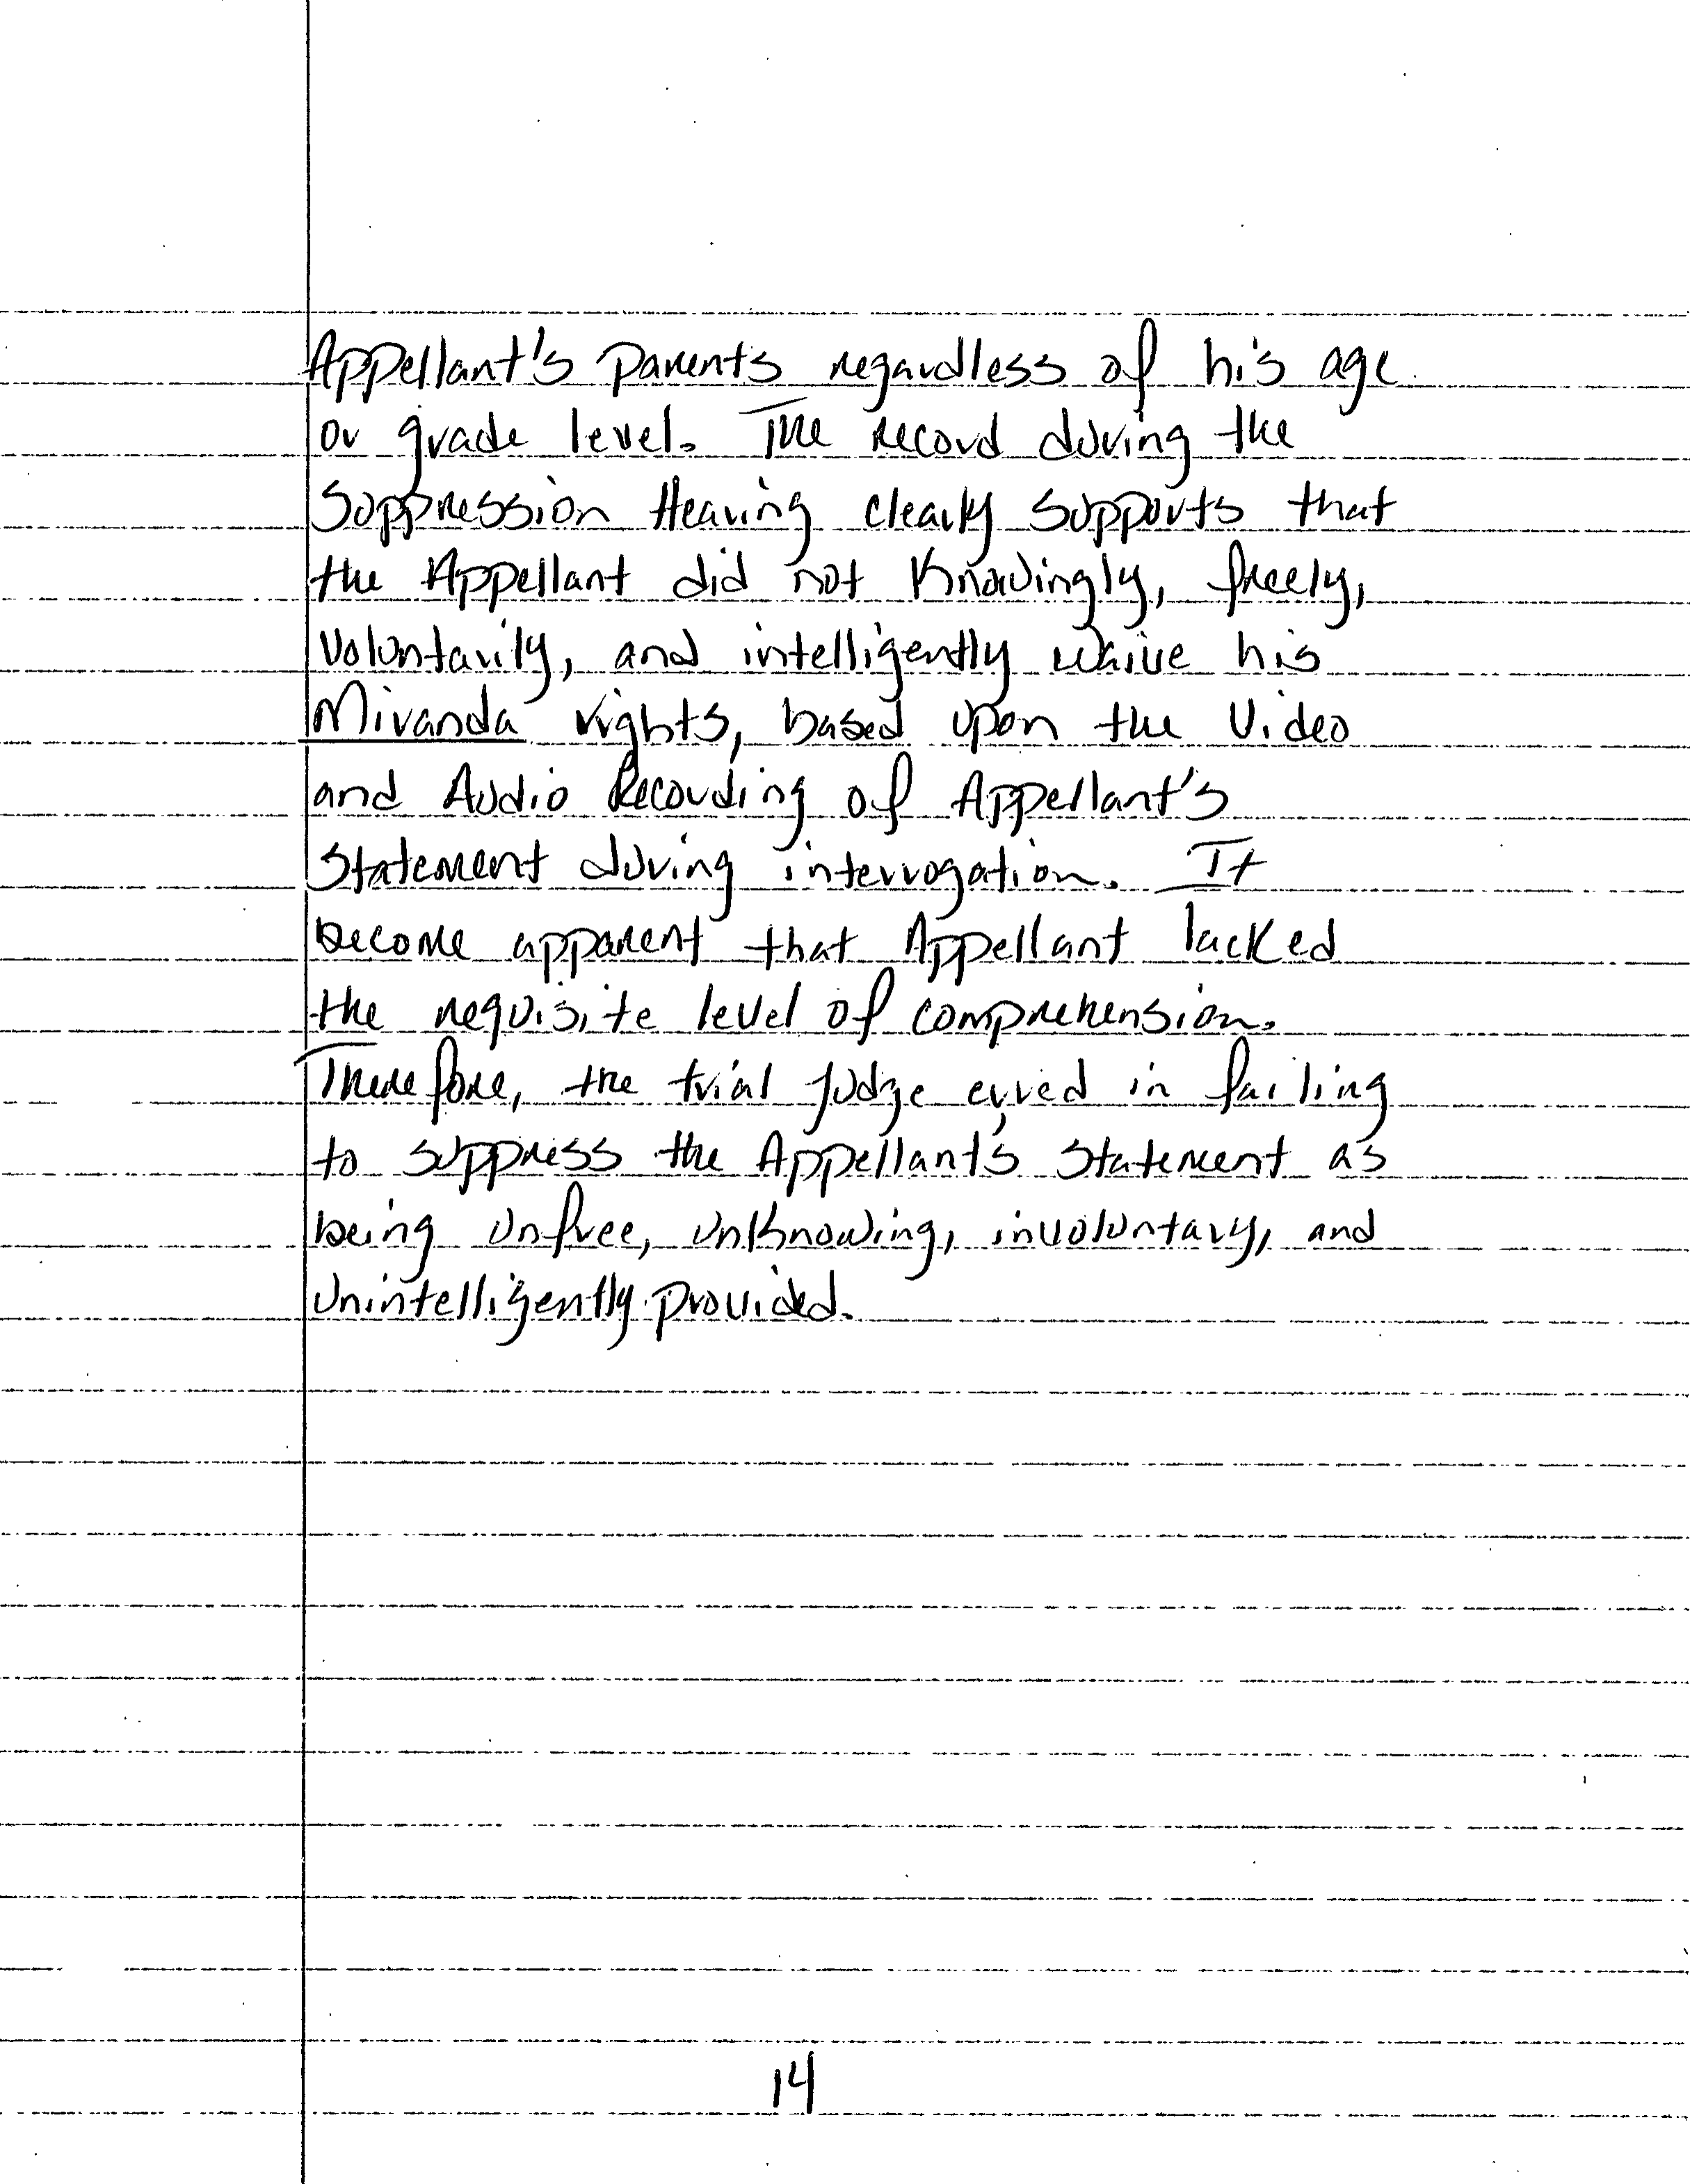 Appellant's parents regardless of his age
or grade level. The record during the
Suppression Hearing clearly supports that
the Appellant did not Knowingly, freely,
voluntarily, and intelligently waive his
Miranda rights, based upon the Video
and Audio Recording of Appellant's
Statement during interrogation. It
become apparent that Appellant lacked
the requisite level of comprehension.
Therefore, the trial Judge erred in failing
to suppress the Appellant's Statement as
being unfree, unknowing, involuntary, and
unintelligently provided.
14